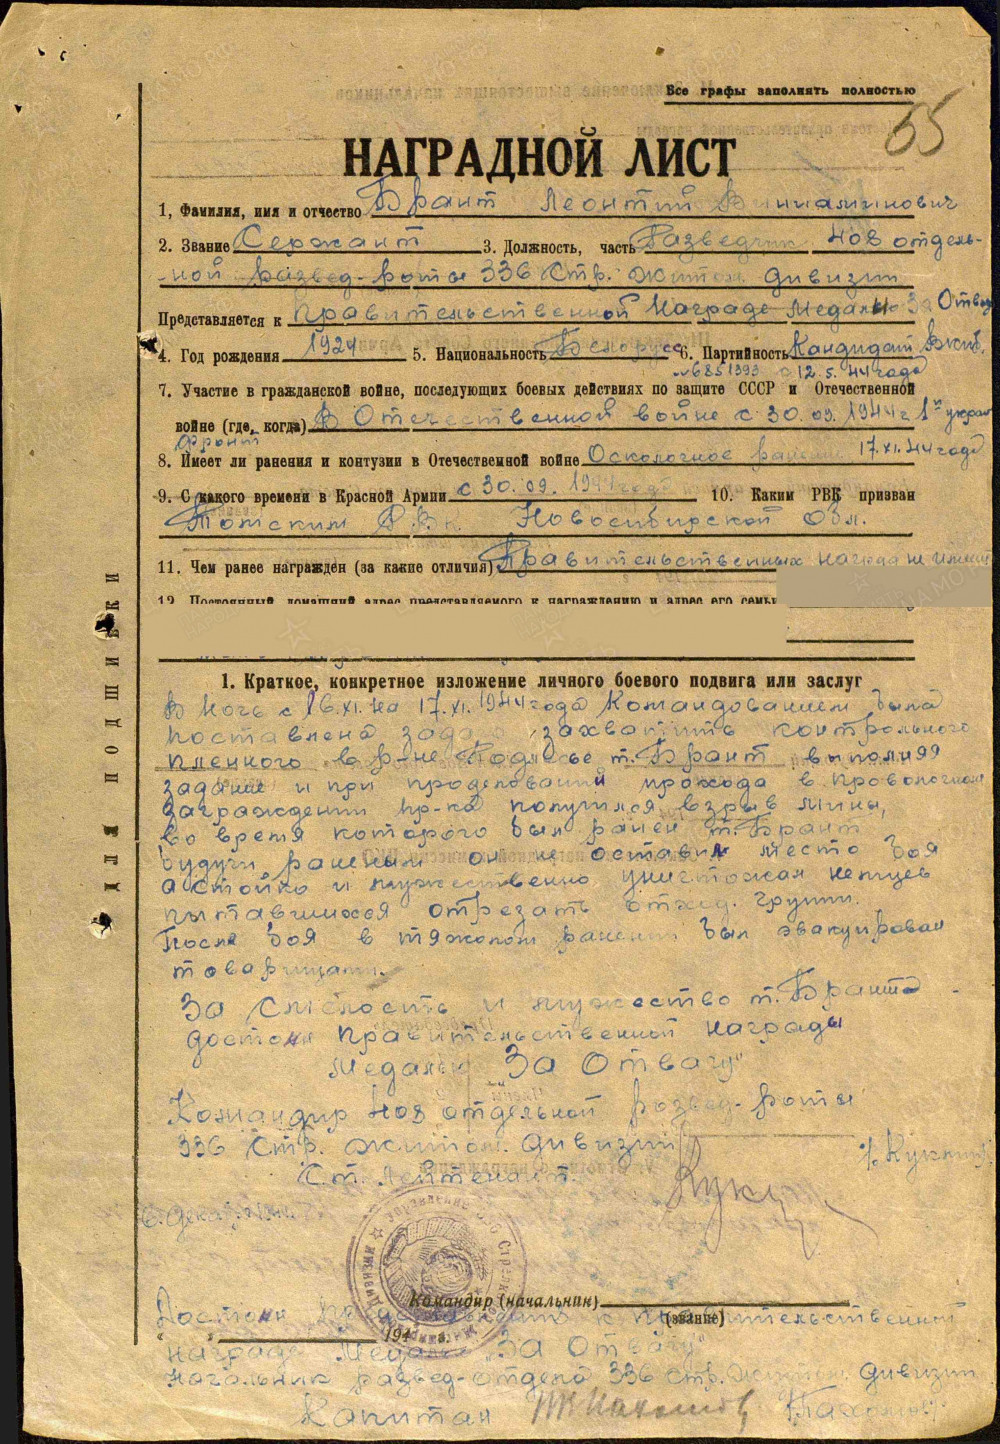 Все графы заполнять полностью
55
НАГРАДНОЙ ЛИСТ
1, Фамилия, имя и отчество Брант Леонтий
2. Звание Сержант 3. Должность, часть Разведчик 408 отдель-
ной развед-роты 336 Стр. Житом. дивизии
Представляется к Правительственной Награде Медалью За Отвагу
4. Год рождения 1924 5. Национальность Белорусс 6. Партийность Кандидат Вкпб.
№6851393 с 12.5.44 года
7. Участие в гражданской войне, последующих боевых действиях по защите СССР и Отечественной
войне (где, когда) В Отечественной войне с 30.09.1944 г 1й украин
фронт
8. Имеет ли ранения и контузии в Отечественной войне Осколочное ранение 17.XI.44 года
9. С какого времени в Красной Армии с 30.09.1941 года 10. Каким РВК призван
Томским Новосибирской обл.
11. Чем ранее награжден (за какие отличия) Правительственных наград не имеет
12. Постоянный домашний адрес представляемого к награждению и адрес его семьи
1. Краткое, конкретное изложение личного боевого подвига или заслуг
В Ночь с 16.XI. на 17.XI.1944 года Командованием была
поставлена задача захватить контрольного
пленного в р-не Подлесье т. Брант выполняя
задание и при проделовании прохода в проволочном
заграждении пр-ка получился взрыв мины,
во время которого был ранен т. Брант
будучи раненым он не оставил место боя
а стойко и мужественно уничтожал немцев
пытавшихся отрезать отход группы.
После боя в тяжолом ранении был эвакуирован
товарищами.
За смелость и мужество т. Брант
достоин правительственной награды
Медалью За Отвагу"
Командир 408 отдельной развед-роты
336 Стр. Житом. дивизии
Ст. Лейтенант.
6. Дека
Командир (начальник)
(звание)
Достоин к правительственной
194 г.
награде Медалью „За Отвагу"
Начальник развед-отдела 336 стр. Житом. дивизии
Капитан
ДЛЯ ПОДШИВКИ